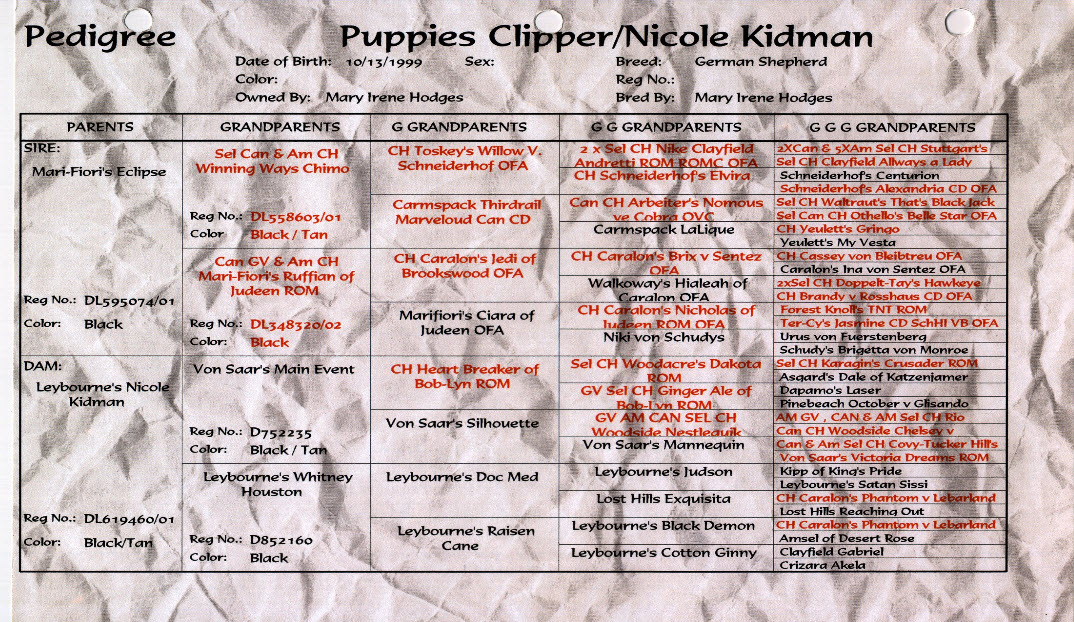 Pedigree
Puppies Clipper/Nicole Kidman
Date of Birth: 10/13/1999 Sex: Breed: German Shepherd
Color: Reg No.:
Owned By: Mary Irene Hodges Bred By: Mary Irene Hodges
PARENTS GRANDPARENTS G GRANDPARENTS G G GRANDPARENTS G G G GRANDPARENTS
SIRE:
Mari-Fiori's Eclipse
Reg No.: DL595074/01
Color: Black
DAM:
Leybourne's Nicole
Kidman
Reg No.: DL619460/01
Color: Black/Tan
Sel Can & Am CH
Winning Ways Chimo
Reg No.: DL558603/01
Color Black / Tan
Can GV & Am CH
Mari-Fiori's Ruffian of
Judeen ROM
Reg No.: DL348320/02
Color: Black
Von Saar's Main Event
Reg No.: D752235
Color: Black / Tan
Leybourne's Whitney
Houston
Reg No.: D852160
Color: Black
CH Toskey's Willow V.
Schneiderhof OFA
Carmspack Thirdrail
Marveloud Can CD
CH Caralon's Jedi of
Brookswood OFA
Marifiori's Ciara of
Judeen OFA
CH Heart Breaker of
Bob-Lyn ROM
Von Saar's Silhouette
Leybourne's Doc Med
Leybourne's Raisen
Cane
2 x Sel CH Nike Clayfield
Andretti ROM ROMC OFA
CH Schneiderhof's Elvira
Can CH Arbeiter's Nomous
ve Cobra OVC
Carmspack LaLique
CH Caralon's Brix v Sentez
OFA
Walkoway's Hialeah of
Caralon OFA
CH Caralon's Nicholas of
Judeen ROM OFA
Niki von Schudys
Sel CH Woodacre's Dakota
ROM
GV Sel CH Ginger Ale of
Bob-Lyn ROM
GV AM CAN SEL CH
Woodside Nestlequik
Von Saar's Mannequin
Leybourne's Judson
Lost Hills Exquisita
Leybourne's Black Demon
Leybourne's Cotton Ginny
2XCan & 5XAm Sel CH Stuttgart's
Sel CH Clayfield Allways a Lady
Schneiderhof's Centurion
Schneiderhof's Alexandria CD OFA
Sel CH Waltraut's That's Black Jack
Sel Can CH Othello's Belle Star OFA
CH Yeulett's Gringo
Yeulett's My Vesta
CH Cassey von Bleibtreu OFA
Caralon's Ina von Sentez OFA
2xSel CH Doppelt-Tay's Hawkeye
CH Brandy v Rosshaus CD OFA
Forest Knoll's TNT ROM
Ter-Cy's Jasmine CD SchHI VB OFA
Urus von Fuerstenberg
Schudy's Brigetta von Monroe
Sel CH Karagin's Crusader ROM
Asgard's Dale of Katzenjamer
Dapamo's Laser
Pinebeach October v Glisando
AM GV , CAN & AM Sel CH Rio
Can CH Woodside Chelsey v
Can & Am Sel CH Covy-Tucker Hill's
Von Saar's Victoria Dreams ROM
Kipp of King's Pride
Leybourne's Satan Sissi
CH Caralon's Phantom v Lebarland
Lost Hills Reaching Out
CH Caralon's Phantom v Lebarland
Amsel of Desert Rose
Clayfield Gabriel
Crizara Akela